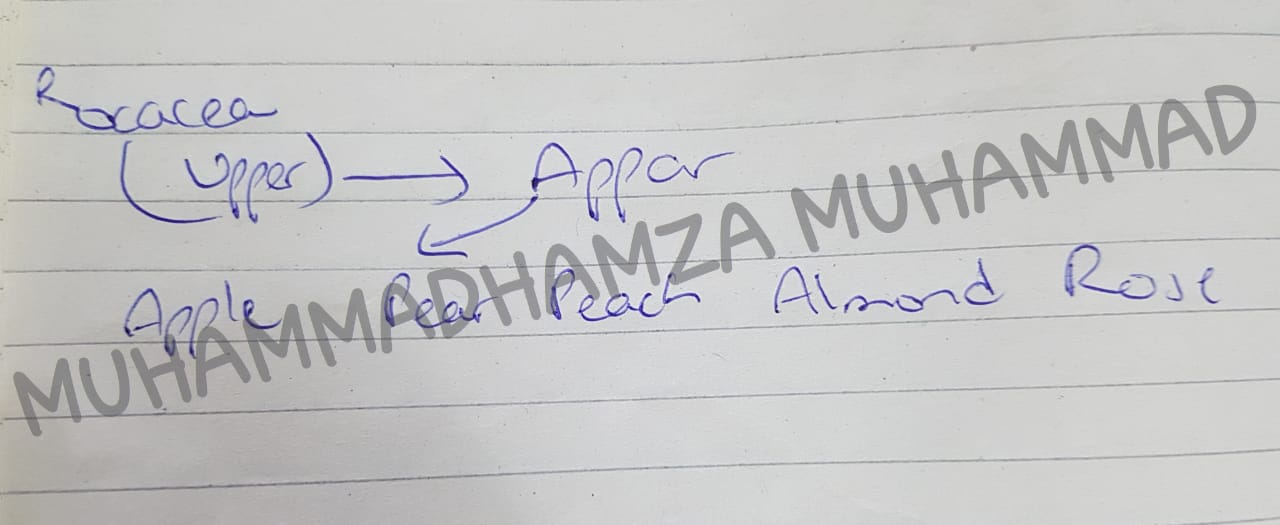 Rocacea
(Upper) → Appar
Apple Pear Peach Almond Rose
MUHAMMADHAMZA MUHAMMAD